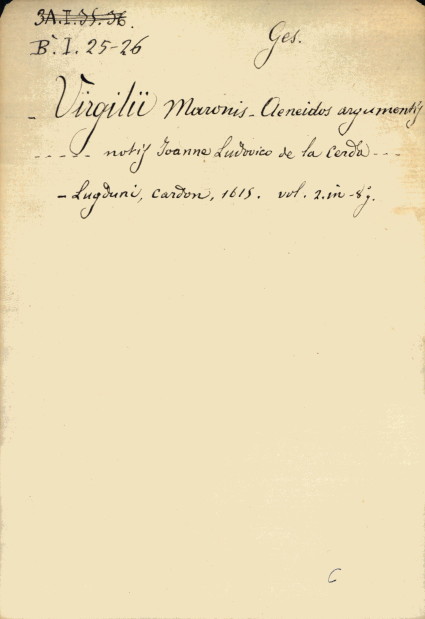 3A.I.35.36.
B`. I. 25-26
Ges.
- Virgilii Maronis - Aeneidos argumentis
- - - - - notis Joanne Ludovico de la Cerda - - -
- Lugduni, Cardon, 1615. vol. 2. in - 8º.
C